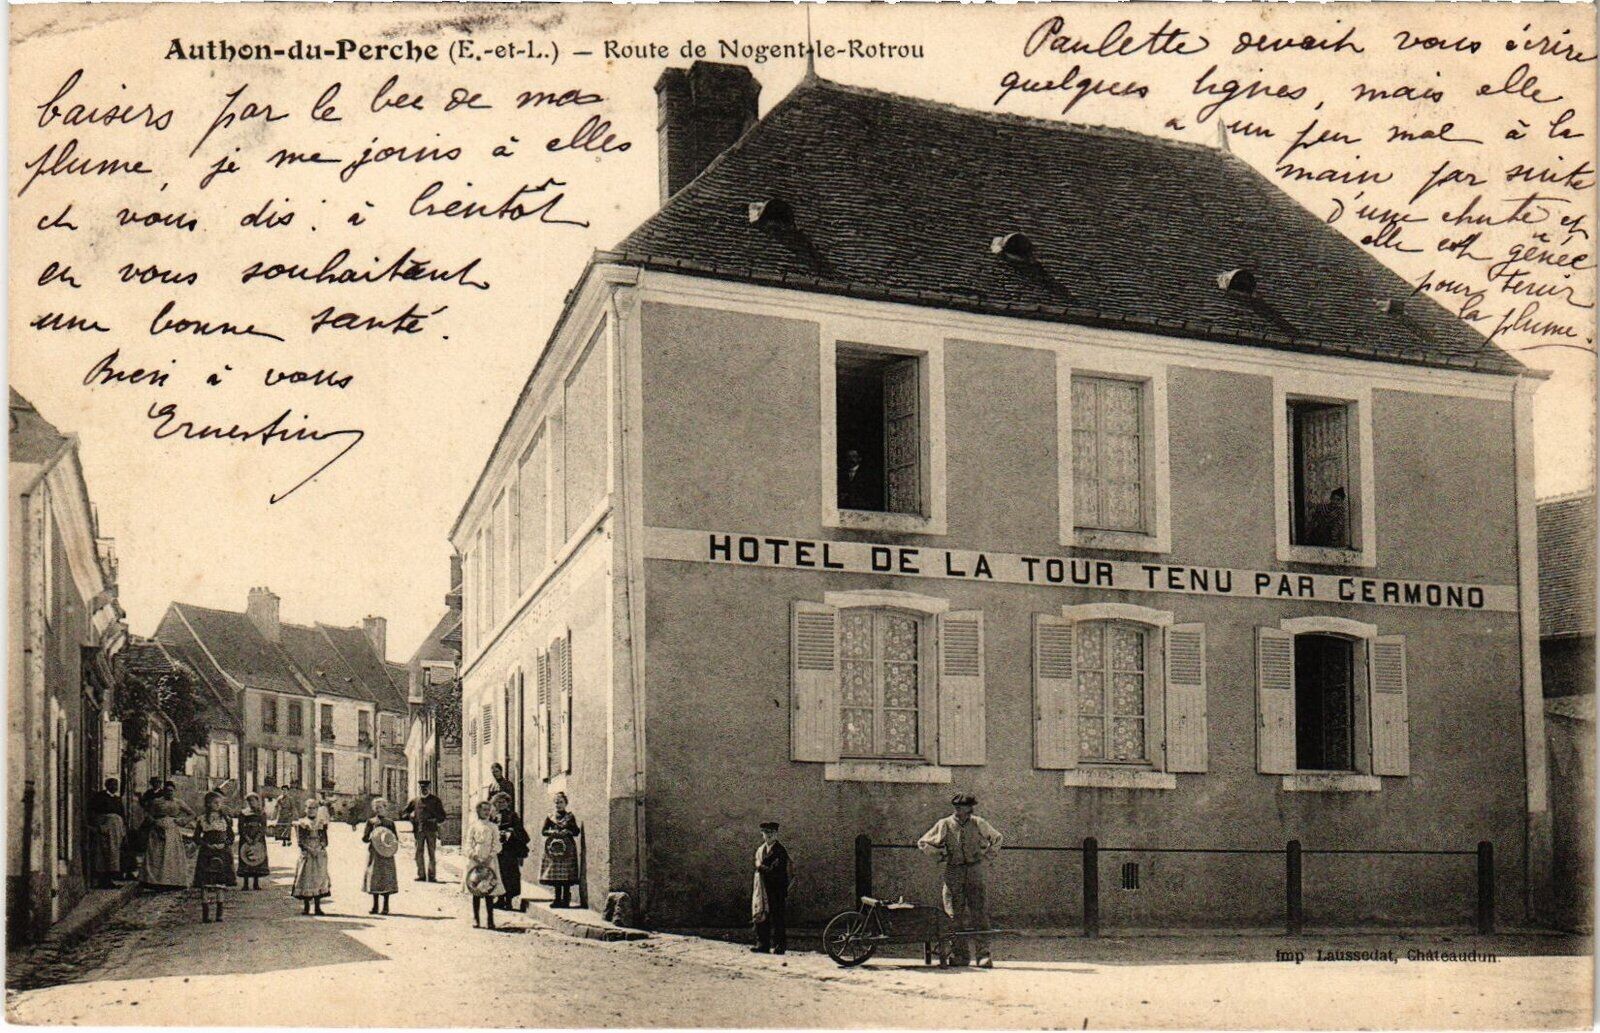 Authon-du-Perche (E.-et-L.) — Route de Nogent-le-Rotrou
baisers par le bec de ma
plume, je me joins à elles
et vous dis : à bientôt
en vous souhaitant
une bonne santé.
Bien à vous
Ernestine
Paulette devait vous écrire
quelques lignes, mais elle
a un peu mal à la
main par suite
d'une chute et
elle est gênée
pour tenir
la plume.
HOTEL DE LA TOUR TENU PAR GERMOND
Imp Laussedat, Châteaudun